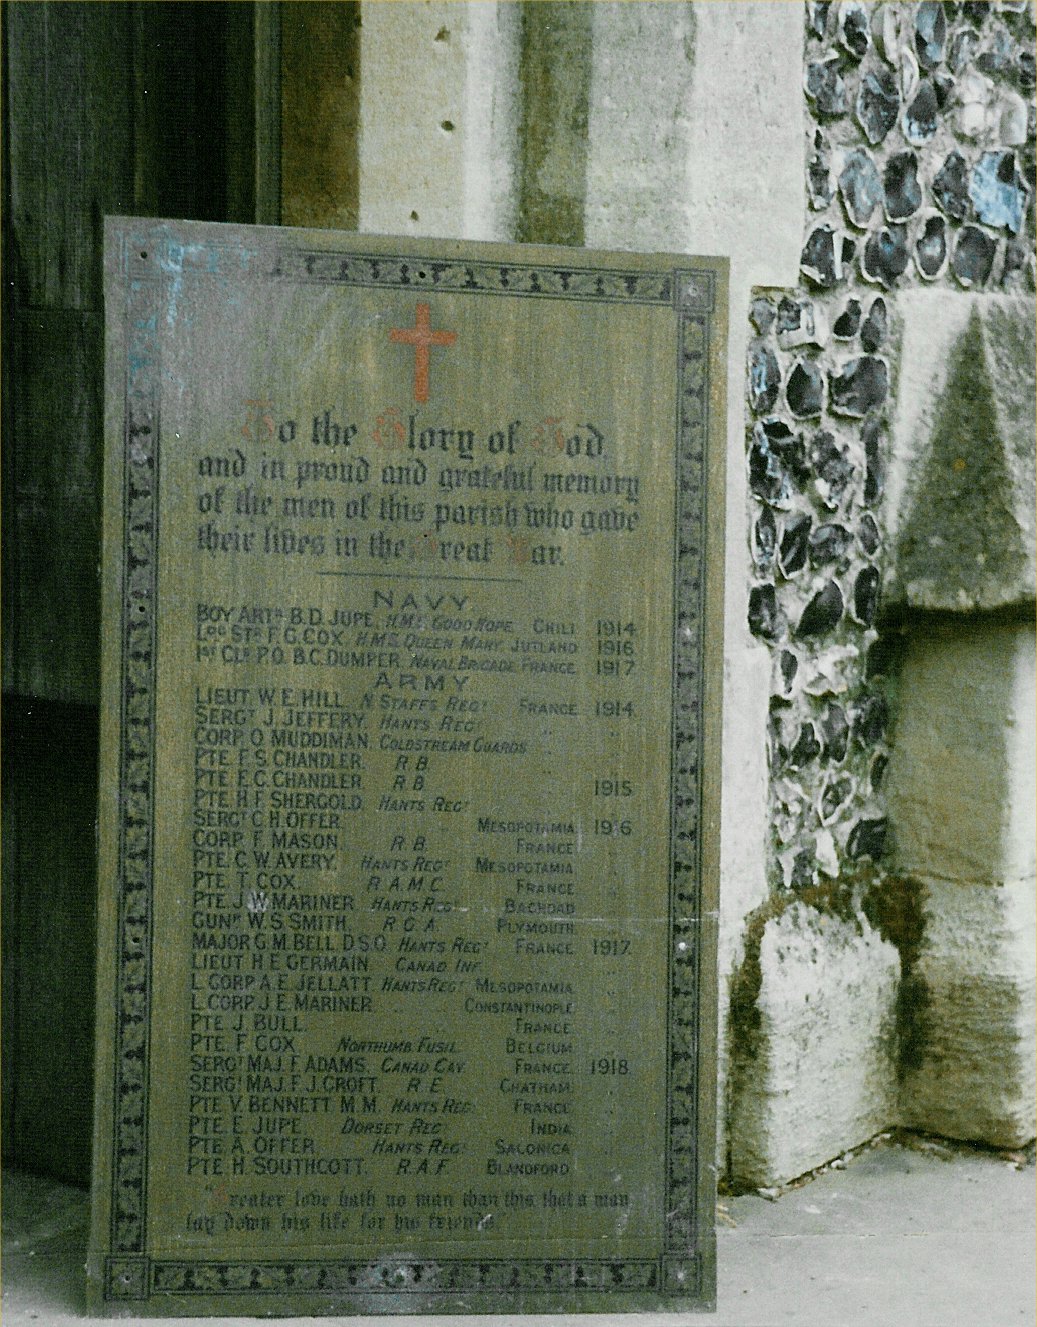 To the Glory of God,
and in proud and grateful memory
of the men of this parish who gave
their lives in the Great War.
NAVY
BOY ARTR B.D. JUPE. H.M.S. GOOD HOPE. CHILI 1914
LDG STR F.G. COX. H.M.S. QUEEN MARY. JUTLAND 1916
1ST CLS P.O. B.C. DUMPER. NAVAL BRIGADE. FRANCE. 1917
ARMY
LIEUT. W.E. HILL. N. STAFFS REGT FRANCE. 1914.
SERGT J. JEFFERY. HANTS REGT " "
CORP. O. MUDDIMAN. COLDSTREAM GUARDS " "
PTE F.S. CHANDLER. R.B. "
PTE E.C. CHANDLER R.B. " 1915
PTE H.F. SHERGOLD. HANTS REGT
SERGT C.H. OFFER. " " MESOPOTAMIA 1916
CORP. F. MASON. R.B. FRANCE "
PTE C.W. AVERY. HANTS REGT MESOPOTAMIA "
PTE T. COX. R.A.M.C. FRANCE "
PTE J.W. MARINER HANTS REGT BAGHDAD "
GUNR W.S. SMITH. R.G.A. PLYMOUTH "
MAJOR G.M. BELL. D.S.O. HANTS REGT FRANCE 1917.
LIEUT H.E. GERMAIN. CANAD INF. " "
L. CORP A.E. JELLATT HANTS REGT MESOPOTAMIA "
L. CORP. J.E. MARINER. " " CONSTANTINOPLE "
PTE J. BULL. " " FRANCE "
PTE F. COX. NORTHUMB. FUSIL. BELGIUM "
SERGT MAJ. F. ADAMS. CANAD CAV. FRANCE. 1918.
SERGT MAJ. F.J. CROFT. R.E. CHATHAM "
PTE V. BENNETT M.M. HANTS REG. FRANCE "
PTE E. JUPE. DORSET REGT INDIA "
PTE A. OFFER. HANTS REGT SALONICA "
PTE H. SOUTHCOTT. R.A.F. BLANDFORD "
"Greater love hath no man than this that a man
lay down his life for his friends.